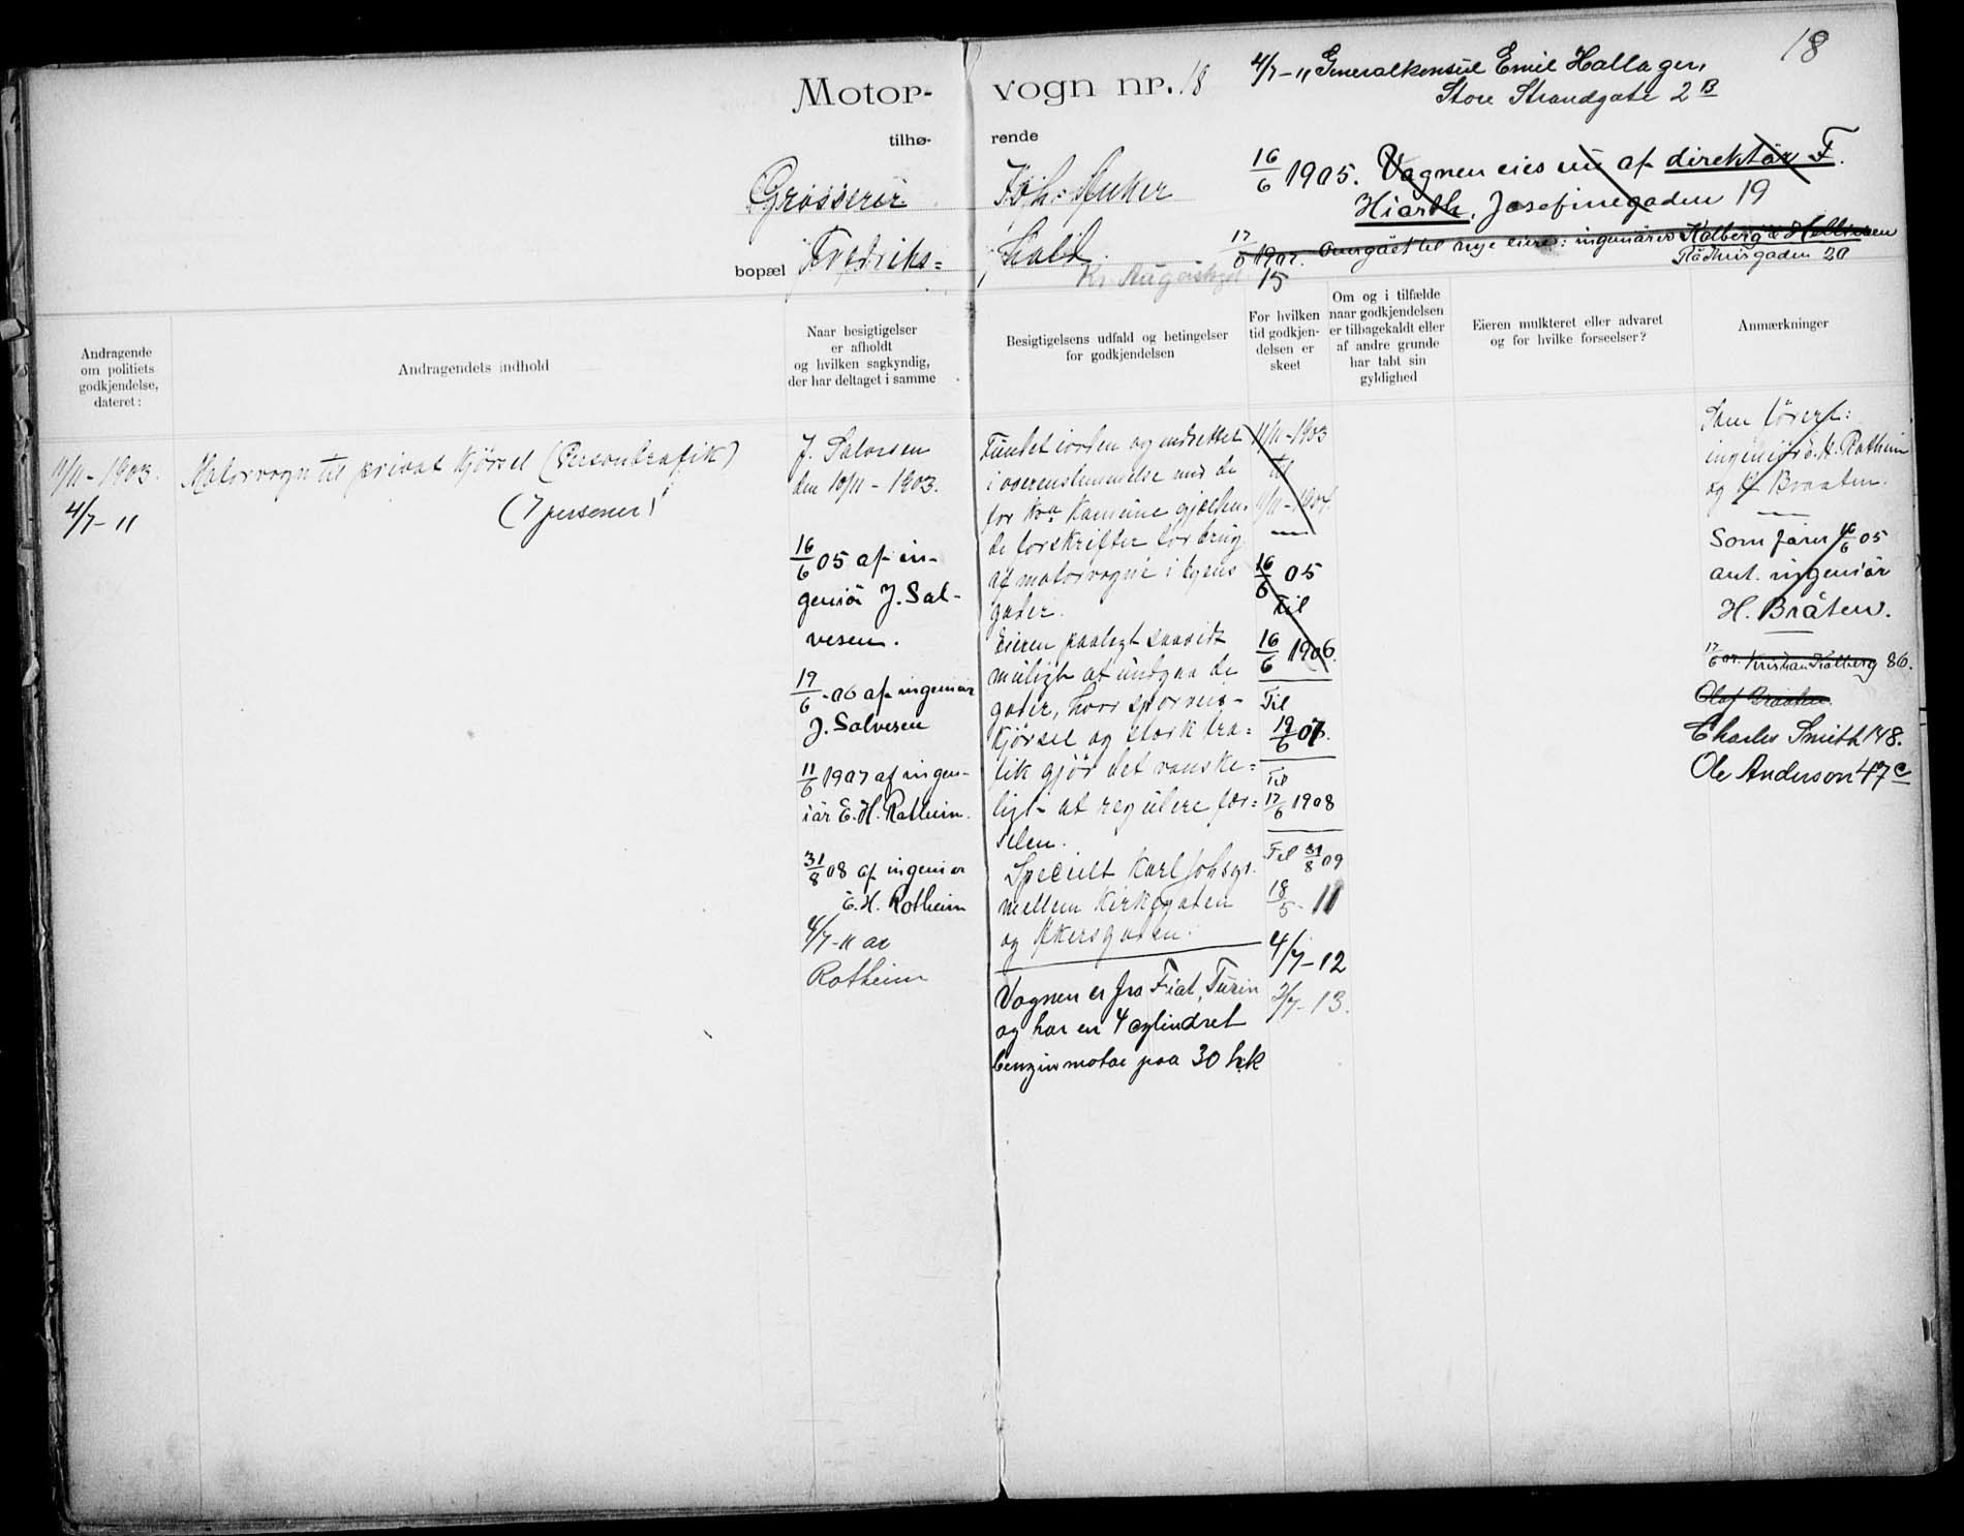 18
Motor- vogn nr. 18
4/7-11 Generalkonsul Emil Hallager,
Store Strandgate 2 B
tilhø- rende
Grosserer Joh: Anker
16/6 1905. Vognen eies nu af direktør F.
Hiorth, Josefinegaden 19
17/6 1907. Overgået til nye eiere: ingeniører Kolberg &
Rådhusgaden 20
bopæl Fredriks= hald
15
Andragende
om politiets
godkjendelse,
dateret:
Andragendets indhold
Naar besigtigelser
er afholdt
og hvilken sagkyndig,
der har deltaget i samme
Besigtigelsens udfald og betingelser
for godkjendelsen
For hvilken
tid godkjen-
delsen er
skeet
Om og i tilfælde
naar godkjendelsen
er tilbagekaldt eller
af andre grunde
har tabt sin
gyldighed
Eieren mulkteret eller advaret
og for hvilke forseelser?
Anmærkninger
11/11-1903.
4/7-11
Motorvogn til privat kjørsel (Persontrafik)
(7 personer)
J. Salvesen
den 10/11-1903.
16/6 05 af in-
geniør J. Sal-
vesen.
19/6-06 af ingeniør
J. Salvesen
11/6 1907 af ingen-
iør E. H. Rotheim.
31/8 08 af ingeniør
E. H. Rotheim
4/7-11 av
Rotheim
Fundet i orden og indrettet
i overensstemmelse med de
for Kra Kommune gjælden-
de forskrifter for brug
af motorvogne i byens
gader.
Eieren paalagt saavidt
muligt at undgaa de
gader, hvor sporveis-
kjørsel og stærk tra=
fik gjør det vanske=
ligt at regulere fær=
selen.
Specielt Karl Johsgt.
mellem Kirkegaten
og Akersgaten.
Vognen er fra Fiat, Turin
og har en 4 cylindret
benzinmotor paa 30 h.k
11/11-1903
til
11/11-1904.
16/6 05
til
16/6 1906.
Til
19/6 07.
Til
17/6 1908
Til 31/8 09
18/5-11
4/7-12
3/7-13.
Som fører:
ingeniør E. H. Rotheim
og H. Braaten.
Som fører 16/6 05
ant. ingeniør
H. Bråten.
17/6 07. Kristian Kolberg 86.
Olaf Braaten.
Charles Smith 148.
Ole Anderson 47 c